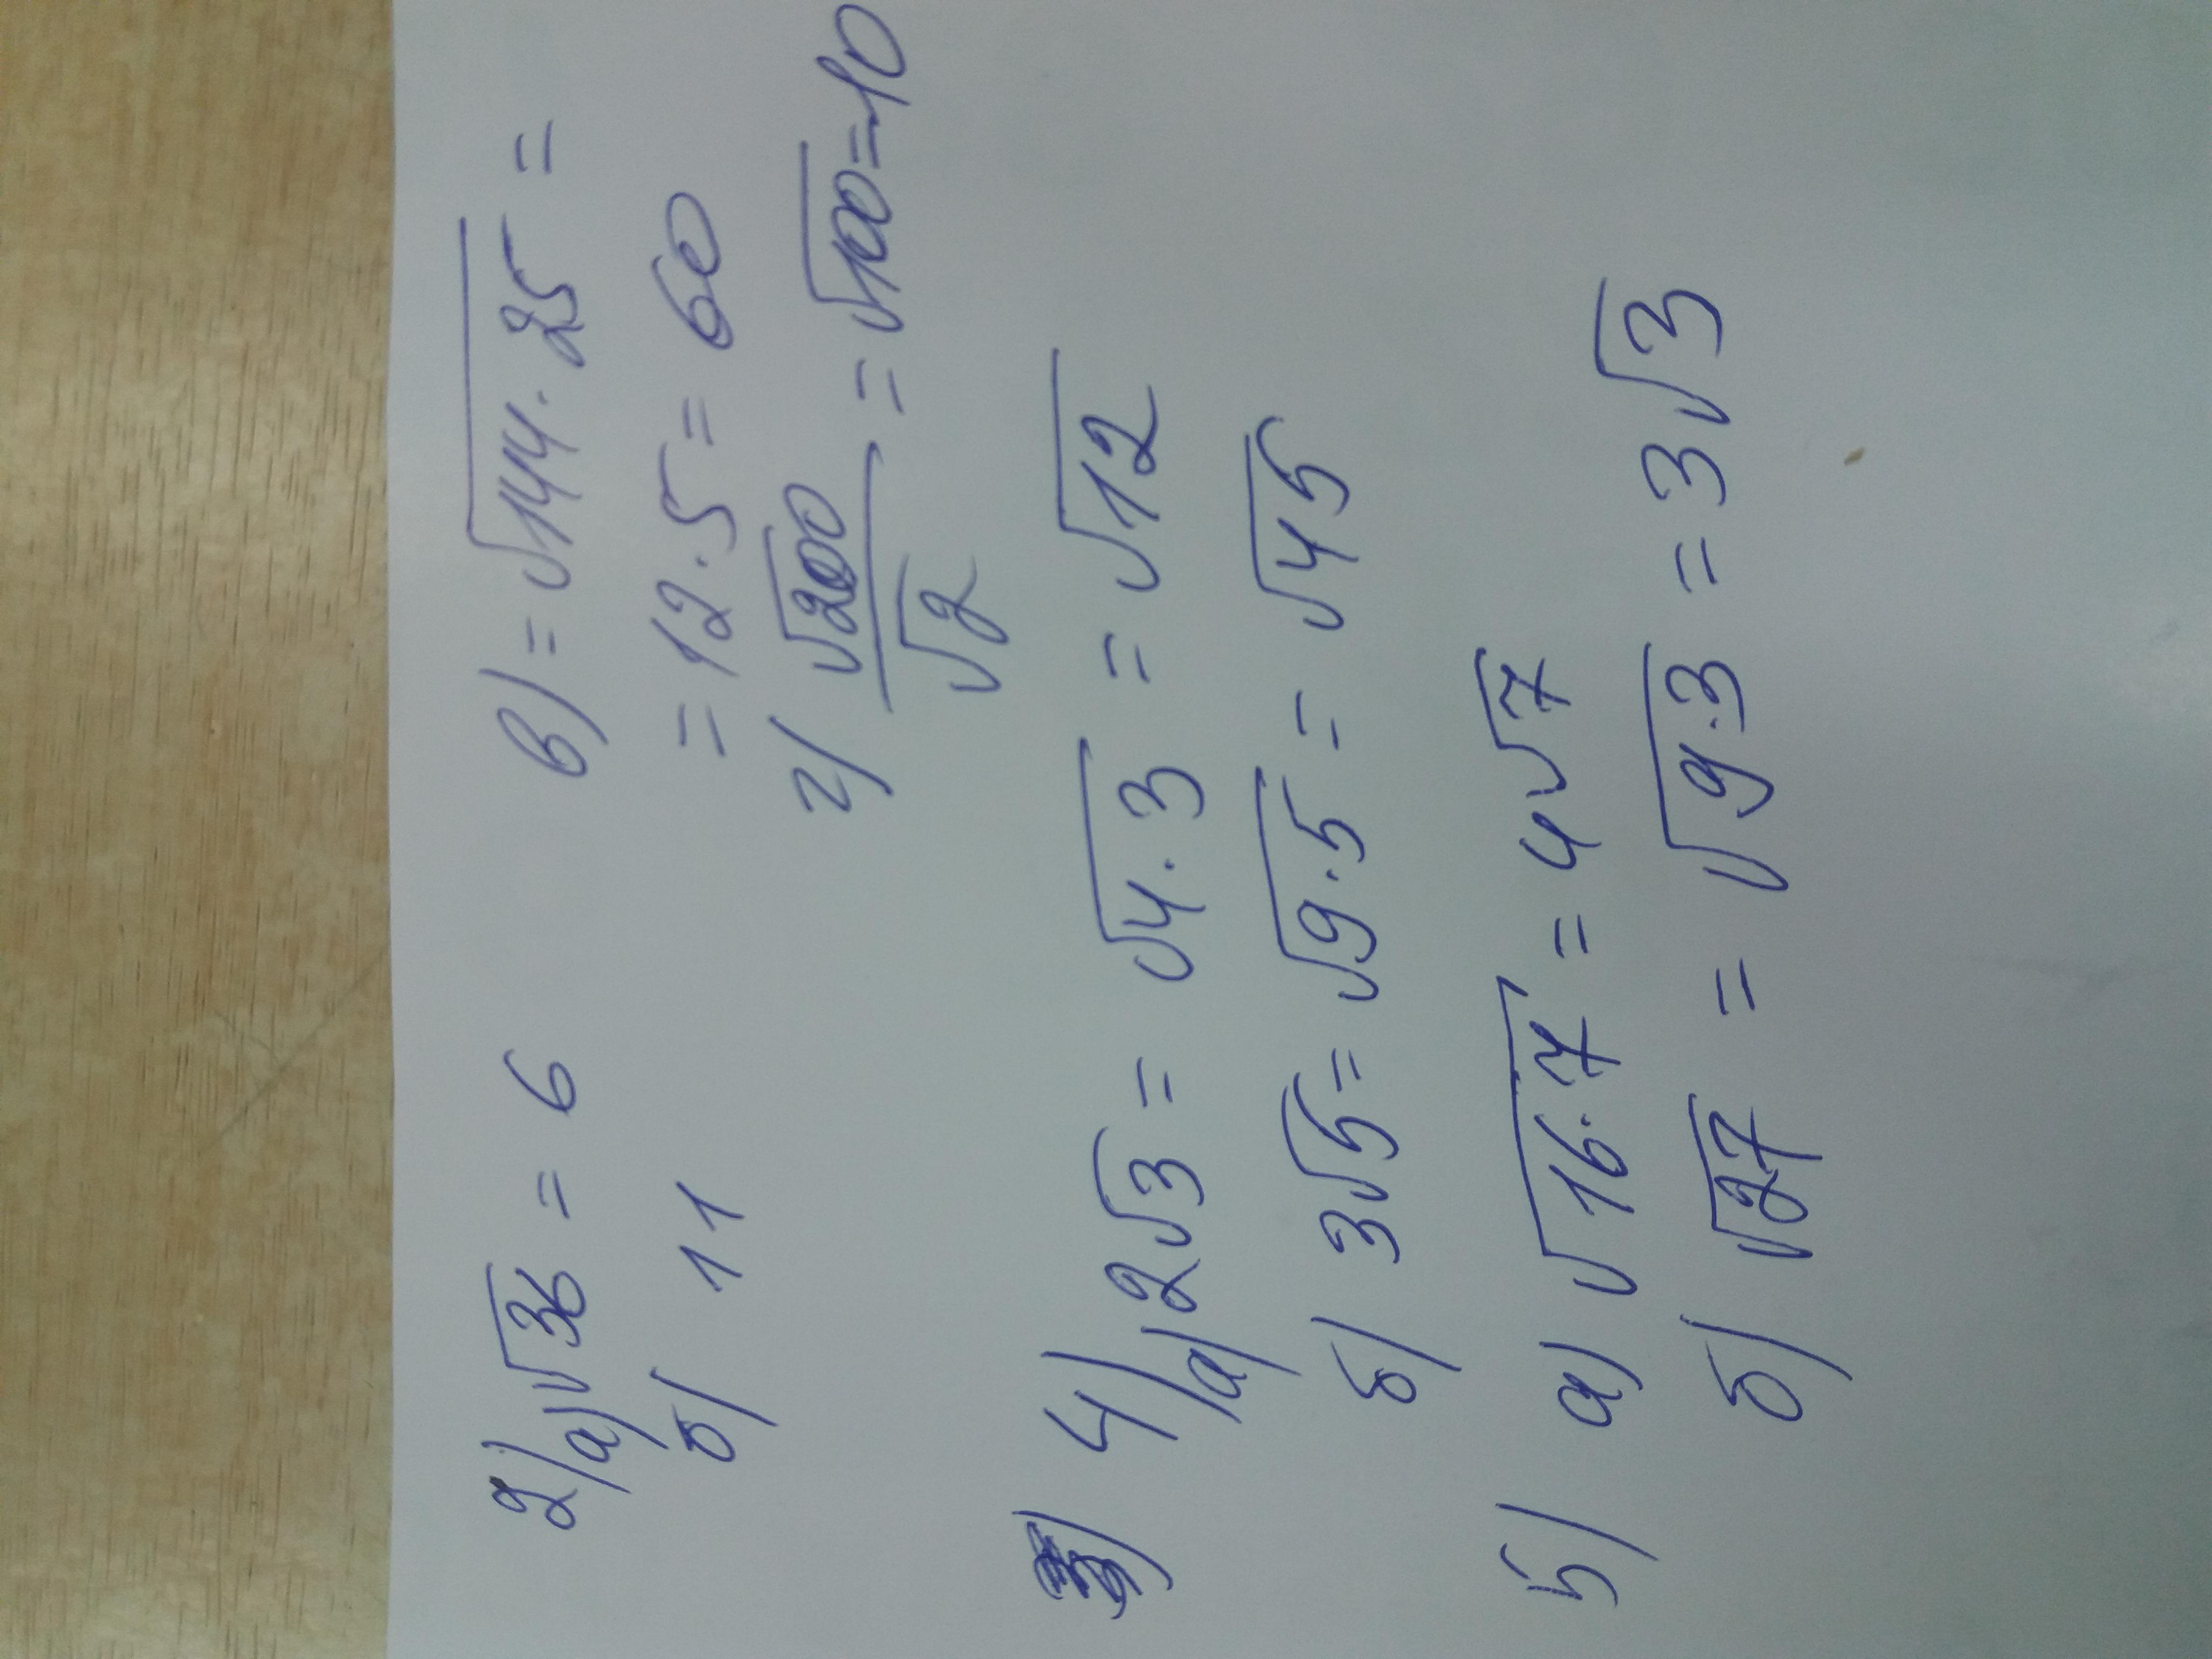 2) а) √36 = 6
б) 11
в) = √144 · 25 =
= 12 · 5 = 60
г) √200 / √2 = √100 = 10
4)
а) 2√3 = √4 · 3 = √12
б) 3√5 = √9 · 5 = √45
5) а) √16 · 7 = 4√7
б) √27 = √9 · 3 = 3√3